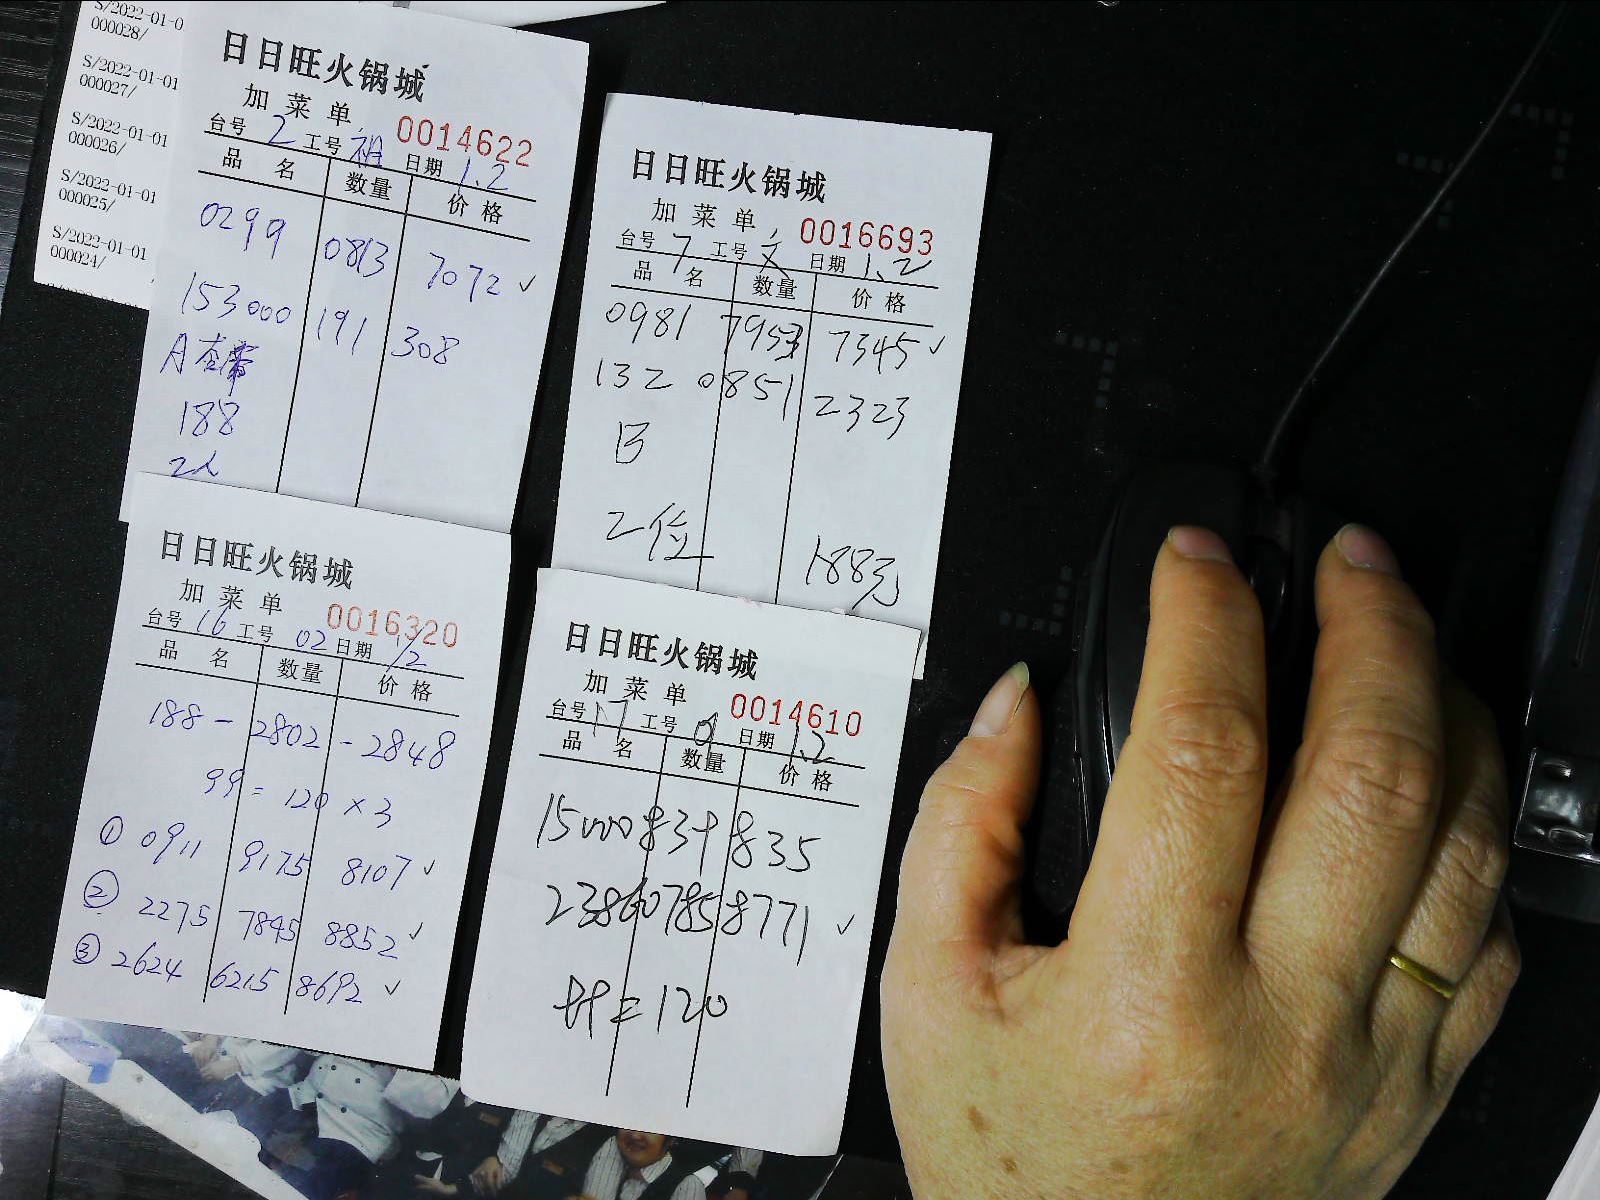 S/2022-01-0
000028/
S/2022-01-01
000027/
S/2022-01-01
000026/
S/2022-01-01
000025/
S/2022-01-01
000024/
日日旺火锅城
加菜单
0014622
台号 2 工号 祖 日期 1.2
品 名 数量 价格
0299 0813 7072 ✓
153000 191 308
A 套席
188
2人
日日旺火锅城
加菜单
0016693
台号 7 工号 文 日期 1.2
品 名 数量 价格
0981 7953 7345 ✓
132 0851 2323
B
2位
188元
日日旺火锅城
加菜单
0016320
台号 16 工号 02 日期 1/2
品 名 数量 价格
188 - 2802 - 2848
99 = 120 × 3
① 0911 9175 8107 ✓
② 2275 7845 8852 ✓
③ 2624 6215 8692 ✓
日日旺火锅城
加菜单
0014610
台号 工号 日期 1.2
品 名 数量 价格
835
23860785 8771 ✓
= 120